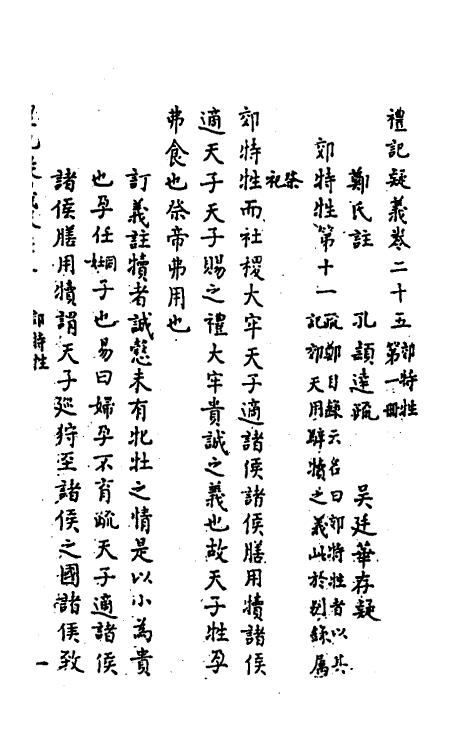 禮記疑義卷二十五 郊特牲第一冊
鄭氏註 孔頴達疏 吳廷華存疑
郊特牲第十一 疏鄭目錄云名曰郊特牲者以其記郊天用騂犢之義此於别錄属
祭祀
郊特牲而社稷大牢天子適諸侯諸侯膳用犢諸侯
適天子天子賜之禮大牢貴誠之義也故天子牲孕
弗食也祭帝弗用也
訂義註犢者誠慤未有牝牡之情是以小為貴
也孕任子也易曰婦孕不育疏天子適諸侯
諸侯膳用犢謂天子廵狩至諸侯之國諸侯致
郊特牲
一